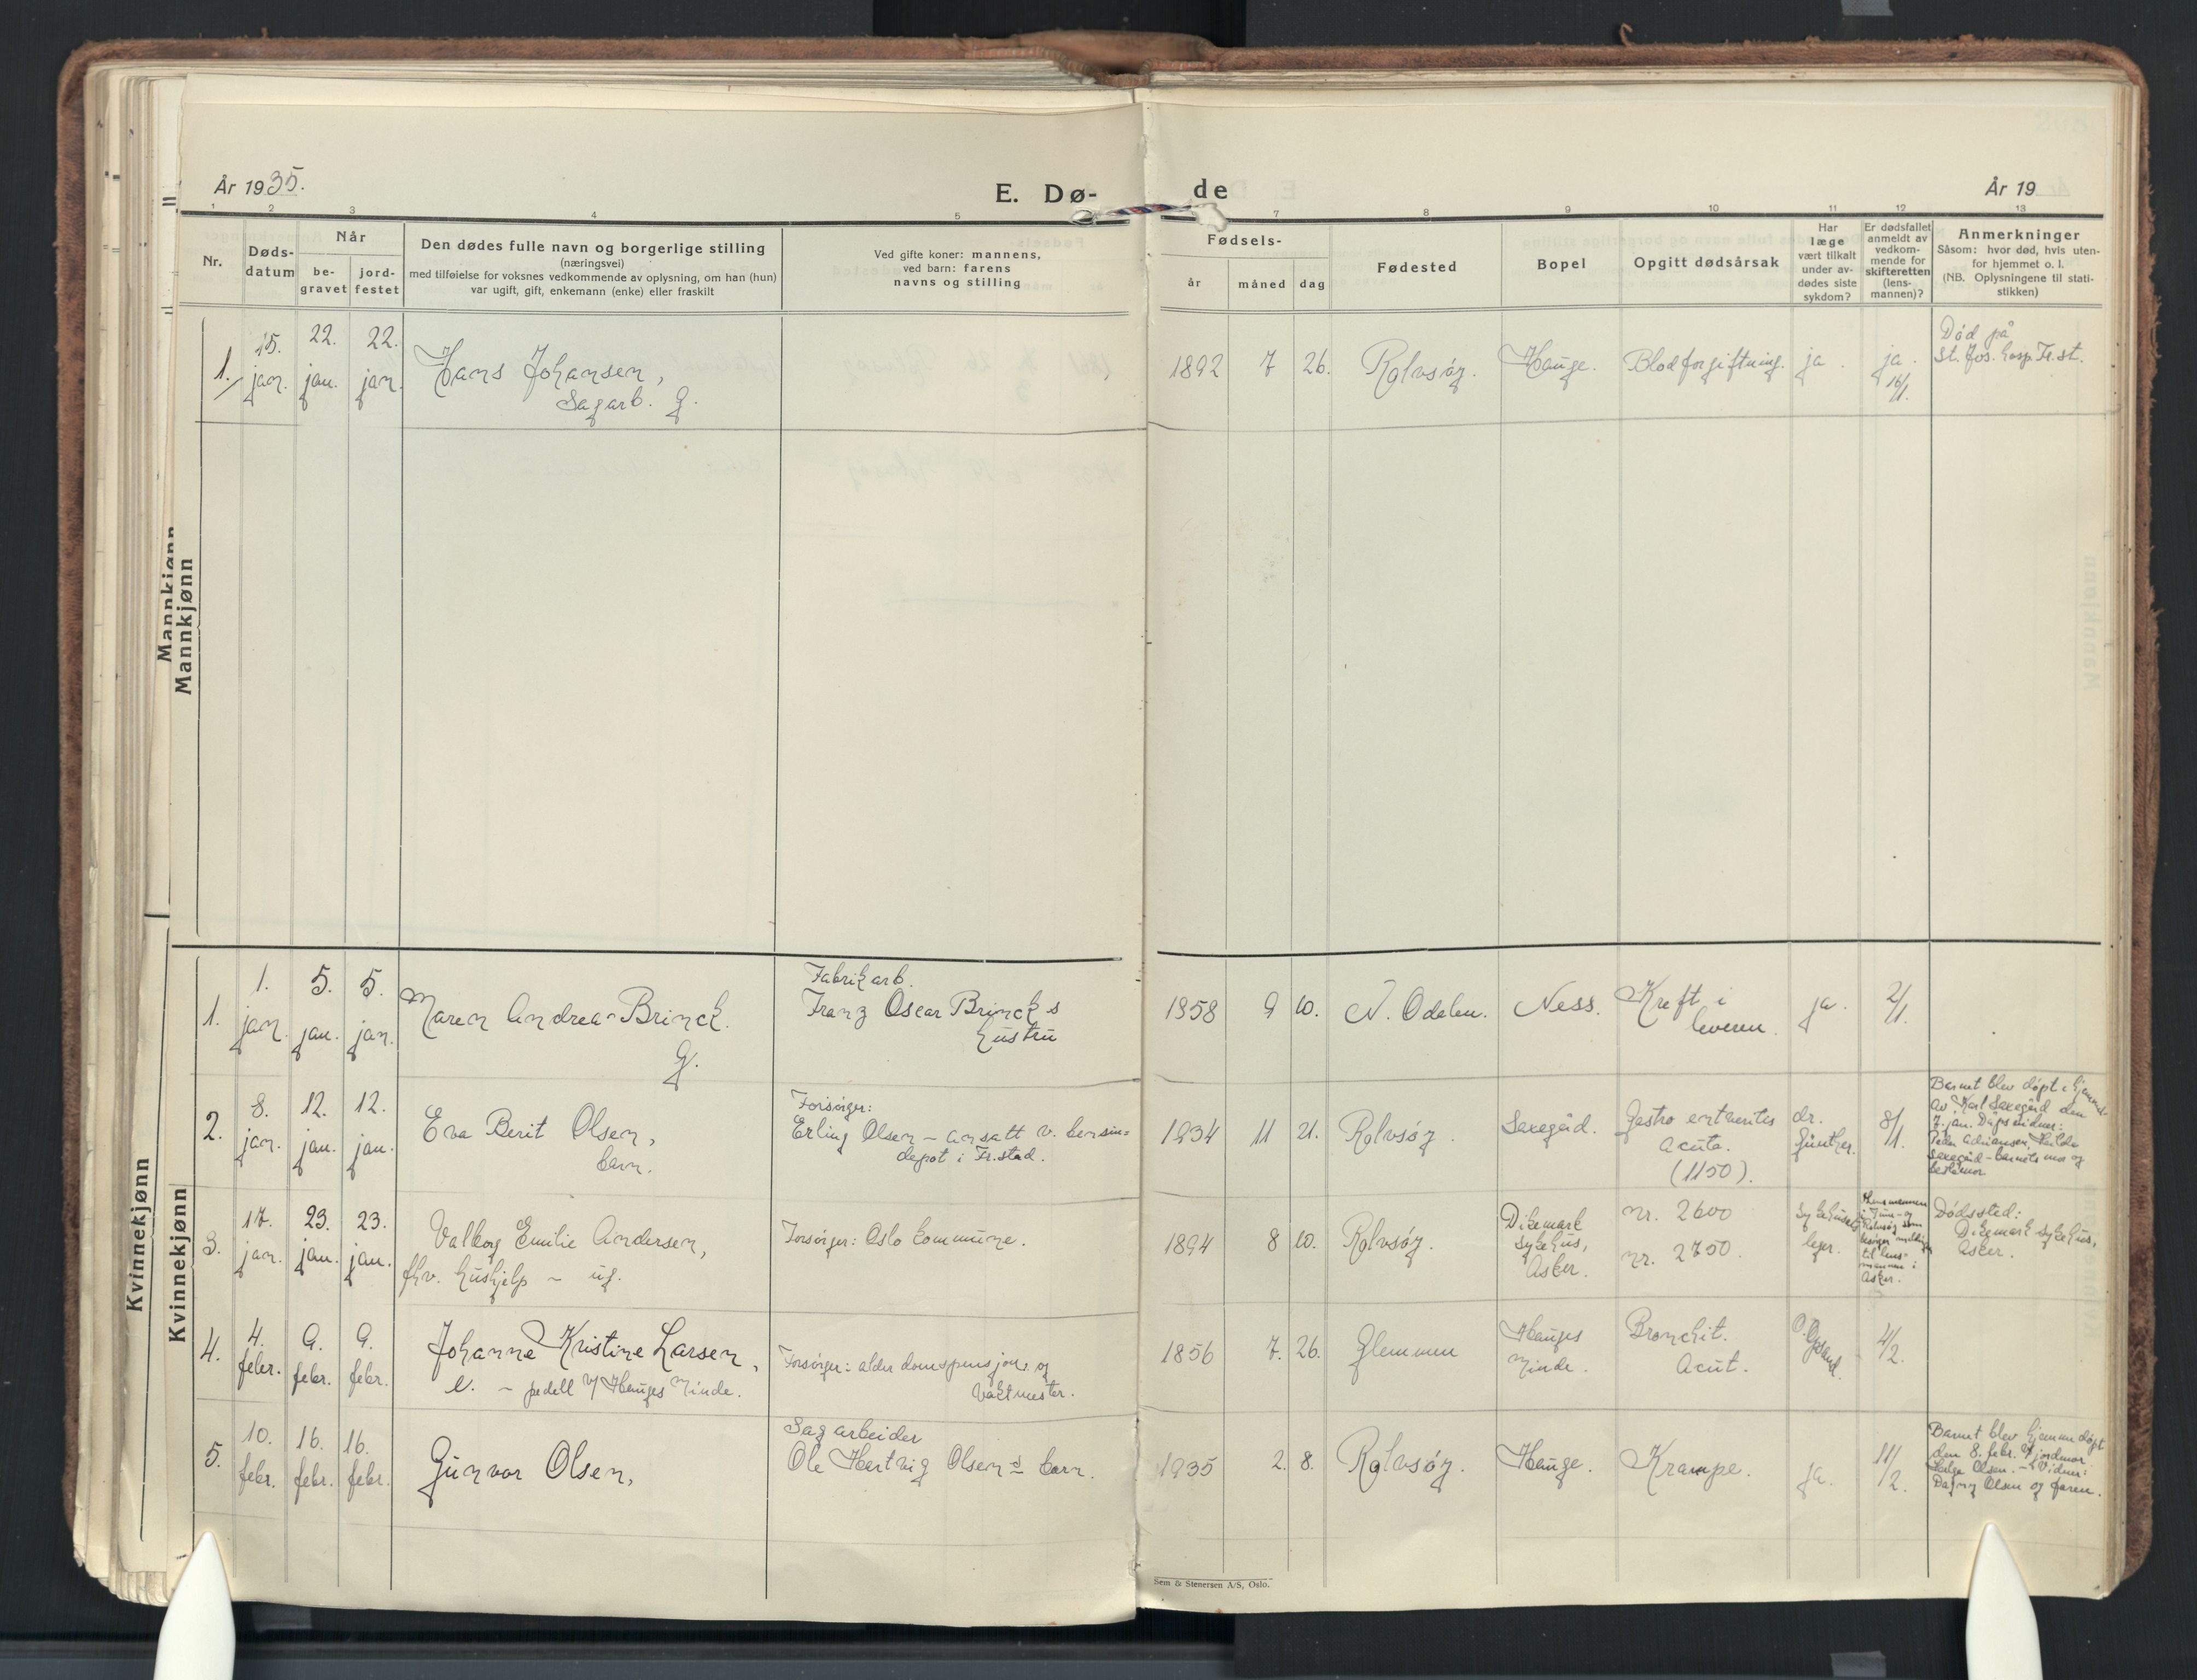 År 1935.
E. Dø-
de
År 19
1 2 3 4 5 7 8 9 10 11 12 13
Nr.
Døds-
datum
Når
be-
gravet
jord-
festet
Den dødes fulle navn og borgerlige stilling
(næringsvei)
med tilføielse for voksnes vedkommende av oplysning, om han (hun)
var ugift, gift, enkemann (enke) eller fraskilt
Ved gifte koner: mannens,
ved barn: farens
navns og stilling
Fødsels-
år måned dag
Fødested
Bopel
Opgitt dødsårsak
Har
læge
vært tilkalt
under av-
dødes siste
sykdom?
Er dødsfallet
anmeldt av
vedkom-
mende for
skifteretten
(lens-
mannen)?
Anmerkninger
Såsom: hvor død, hvis uten-
for hjemmet o. l.
(NB. Oplysningene til stati-
stikken)
Mannkjønn
Mannkjønn
1.
15.
jan.
22.
jan.
22.
jan.
Hans Johansen,
Sagarb. g.
1892 7 26. Rolvsøy. Hauge. Blodforgiftning. ja. ja.
16/1.
Død på
St. Jos. hosp. Fr.st.
Kvinnekjønn
Kvinnekjønn
1.
1.
jan.
5.
jan.
5.
jan.
Maren Andrea Brinck.
g.
Fabrikarb.
Franz Oscar Brincks
hustru
1958 9 10. N. Odalen. Ness. Kreft i
leveren.
ja. 2/1.
2.
8.
jan.
12.
jan.
12.
jan.
Eva Berit Olsen,
barn.
Forsörger:
Erling Olsen - ansatt v. bensin=
depot i Fr.stad.
1934 11 21. Rolvsøy. Saxegård. Gastro enteritis
acuta.
(1150).
dr.
Günther.
8/1.
Barnet blev døpt i hjemmet
av Karl Saxegård den
7. jan. Dåpsvidner:
Peder Adriansen, Hulda
Saxegård - barnets mor og
bestemor.
3.
17.
jan.
23.
jan.
23.
jan.
Valborg Emilie Andersen,
fhv. hushjelp - ug.
Forsörger: Oslo kommune.
1894 8 10. Rolvsøy.
Dikemark
sykehus,
Asker.
nr. 2600
nr. 2750.
sykehusets
leger.
Lensmannen
i Tune- og
Rolvsøy som
besörger
til lens-
mannen i
Asker.
Dødssted:
Dikemark sykehus,
Asker.
4.
4.
febr.
9.
febr.
9.
febr.
Johanne Kristine Larsen,
e. - pedell v/ Hauges Minde.
Forsörger: alderdomspensjon og
vaktmester.
1856 7. 26. Glemmen
Hauges
Minde.
Bronchit.
Acut.
4/2.
5.
10.
febr.
16.
febr.
16.
febr.
Gunvor Olsen,
Sagarbeider
Ole Hartvig Olsens barn.
1935 2. 8. Rolvsøy. Hauge. Krampe. ja. 11/2.
Barnet blev hjemmedøpt
den 8. febr. v/ jordmor
Helga Olsen. - Vidner:
Dagny Olsen og faren.
Sem & Stenersen A/S, Oslo.